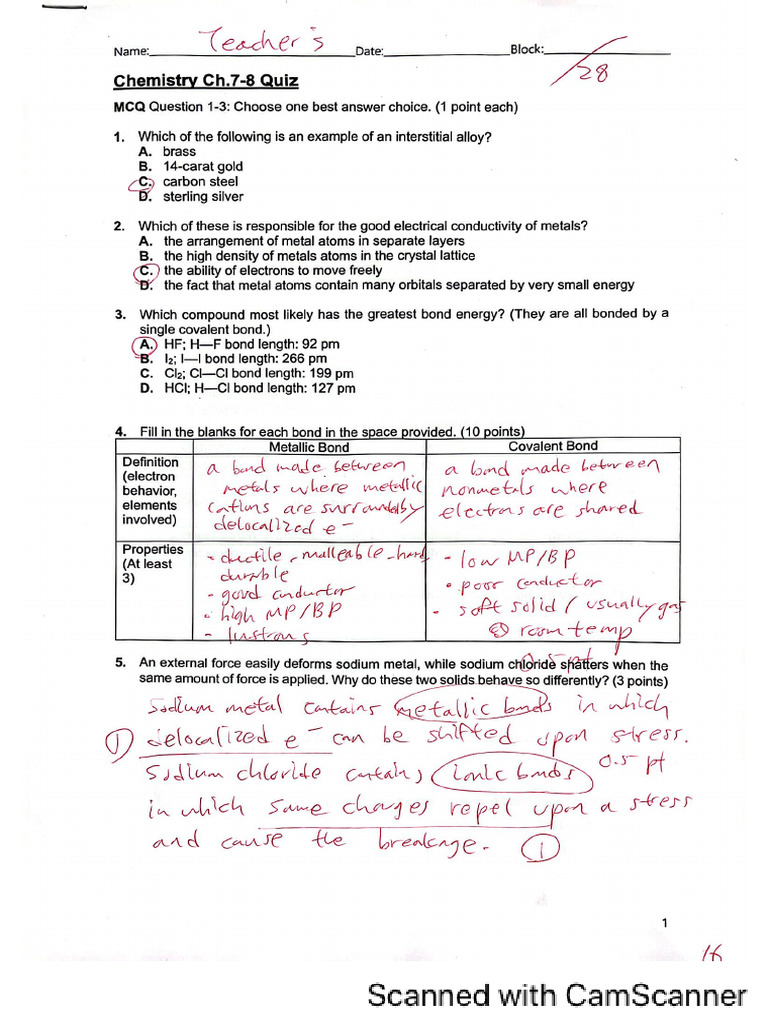 Name: Teacher's Date: Block: /28
Chemistry Ch.7-8 Quiz
MCQ Question 1-3: Choose one best answer choice. (1 point each)
1. Which of the following is an example of an interstitial alloy?
A. brass
B. 14-carat gold
C. carbon steel
D. sterling silver
2. Which of these is responsible for the good electrical conductivity of metals?
A. the arrangement of metal atoms in separate layers
B. the high density of metals atoms in the crystal lattice
C. the ability of electrons to move freely
D. the fact that metal atoms contain many orbitals separated by very small energy
3. Which compound most likely has the greatest bond energy? (They are all bonded by a
single covalent bond.)
A. HF; H—F bond length: 92 pm
B. I₂; I—I bond length: 266 pm
C. Cl₂; Cl—Cl bond length: 199 pm
D. HCl; H—Cl bond length: 127 pm
4. Fill in the blanks for each bond in the space provided. (10 points)
Metallic Bond
Covalent Bond
Definition
(electron
behavior,
elements
involved)
a bond made between
metals where metallic
cations are surrounded by
delocalized e-
a bond made between
nonmetals where
electrons are shared
Properties
(At least
3)
- ductile - malleable - hard
durable
- good conductor
- high MP/BP
- lustrous
- low MP/BP
• poor conductor
- soft solid / usually gas
@ room temp
5. An external force easily deforms sodium metal, while sodium chloride shatters when the
same amount of force is applied. Why do these two solids behave so differently? (3 points)
0.5 pt
Sodium metal contains metallic bonds in which
① delocalized e- can be shifted upon stress.
Sodium chloride contains ionic bonds 0.5 pt
in which same charges repel upon a stress
and cause the breakage. ①
1
16
Scanned with CamScanner